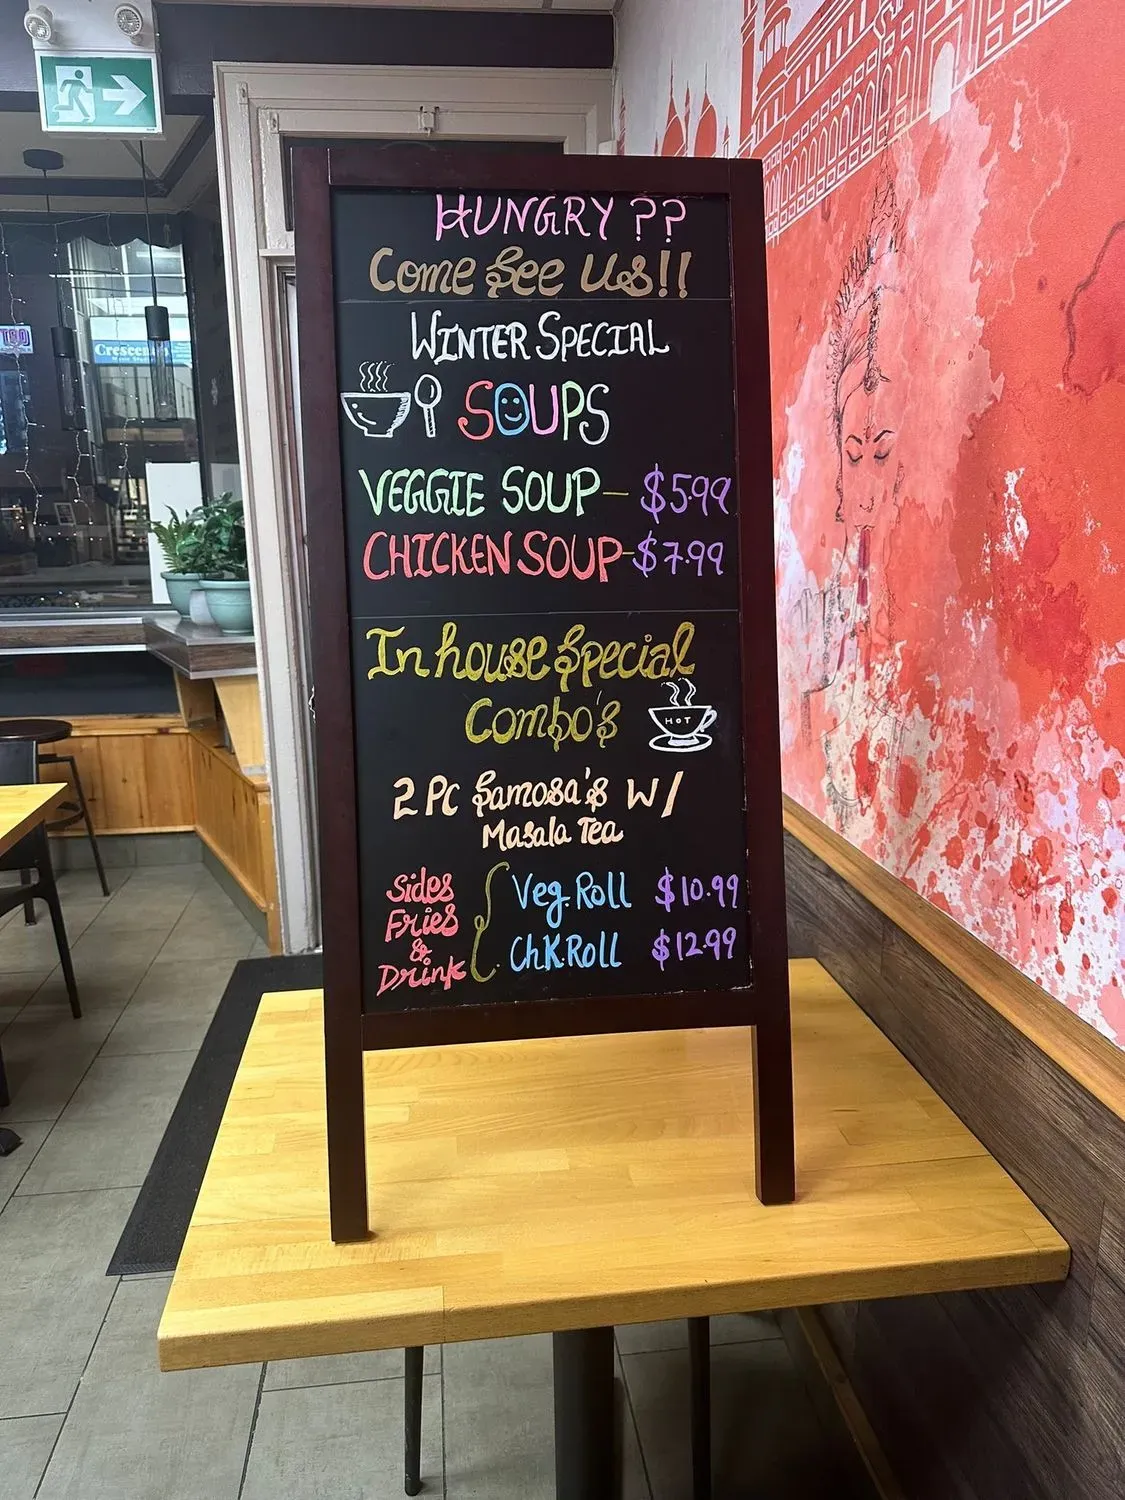 HUNGRY ??
Come See Us!!
WINTER SPECIAL
SOUPS
VEGGIE SOUP - $5.99
CHICKEN SOUP - $7.99
In house Special
Combo's
HOT
2 PC Samosa's W/
Masala Tea
Sides
Fries
&
Drink
Veg. Roll $10.99
ChK. Roll $12.99